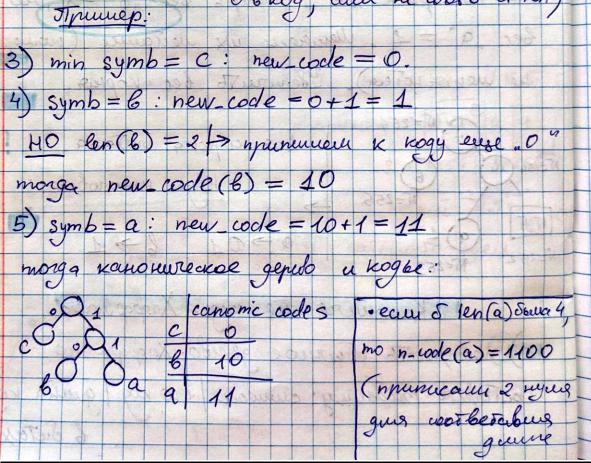 в код, или
Пример:
3) min symb = c : new_code = 0.
4) symb = в : new_code = 0+1 = 1
НО len(в) = 2 |→ припишем к коду еще „0“
тогда new_code(в) = 10
5) symb = a : new_code = 10+1 = 11
тогда каноническое дерево и коды:
0 1
c 0 1
в a
canonic codes
c 0
в 10
a 11
• если б len(a) была 4,
то n-code(a) = 1100
(приписали 2 нуля
для соответствия
длине